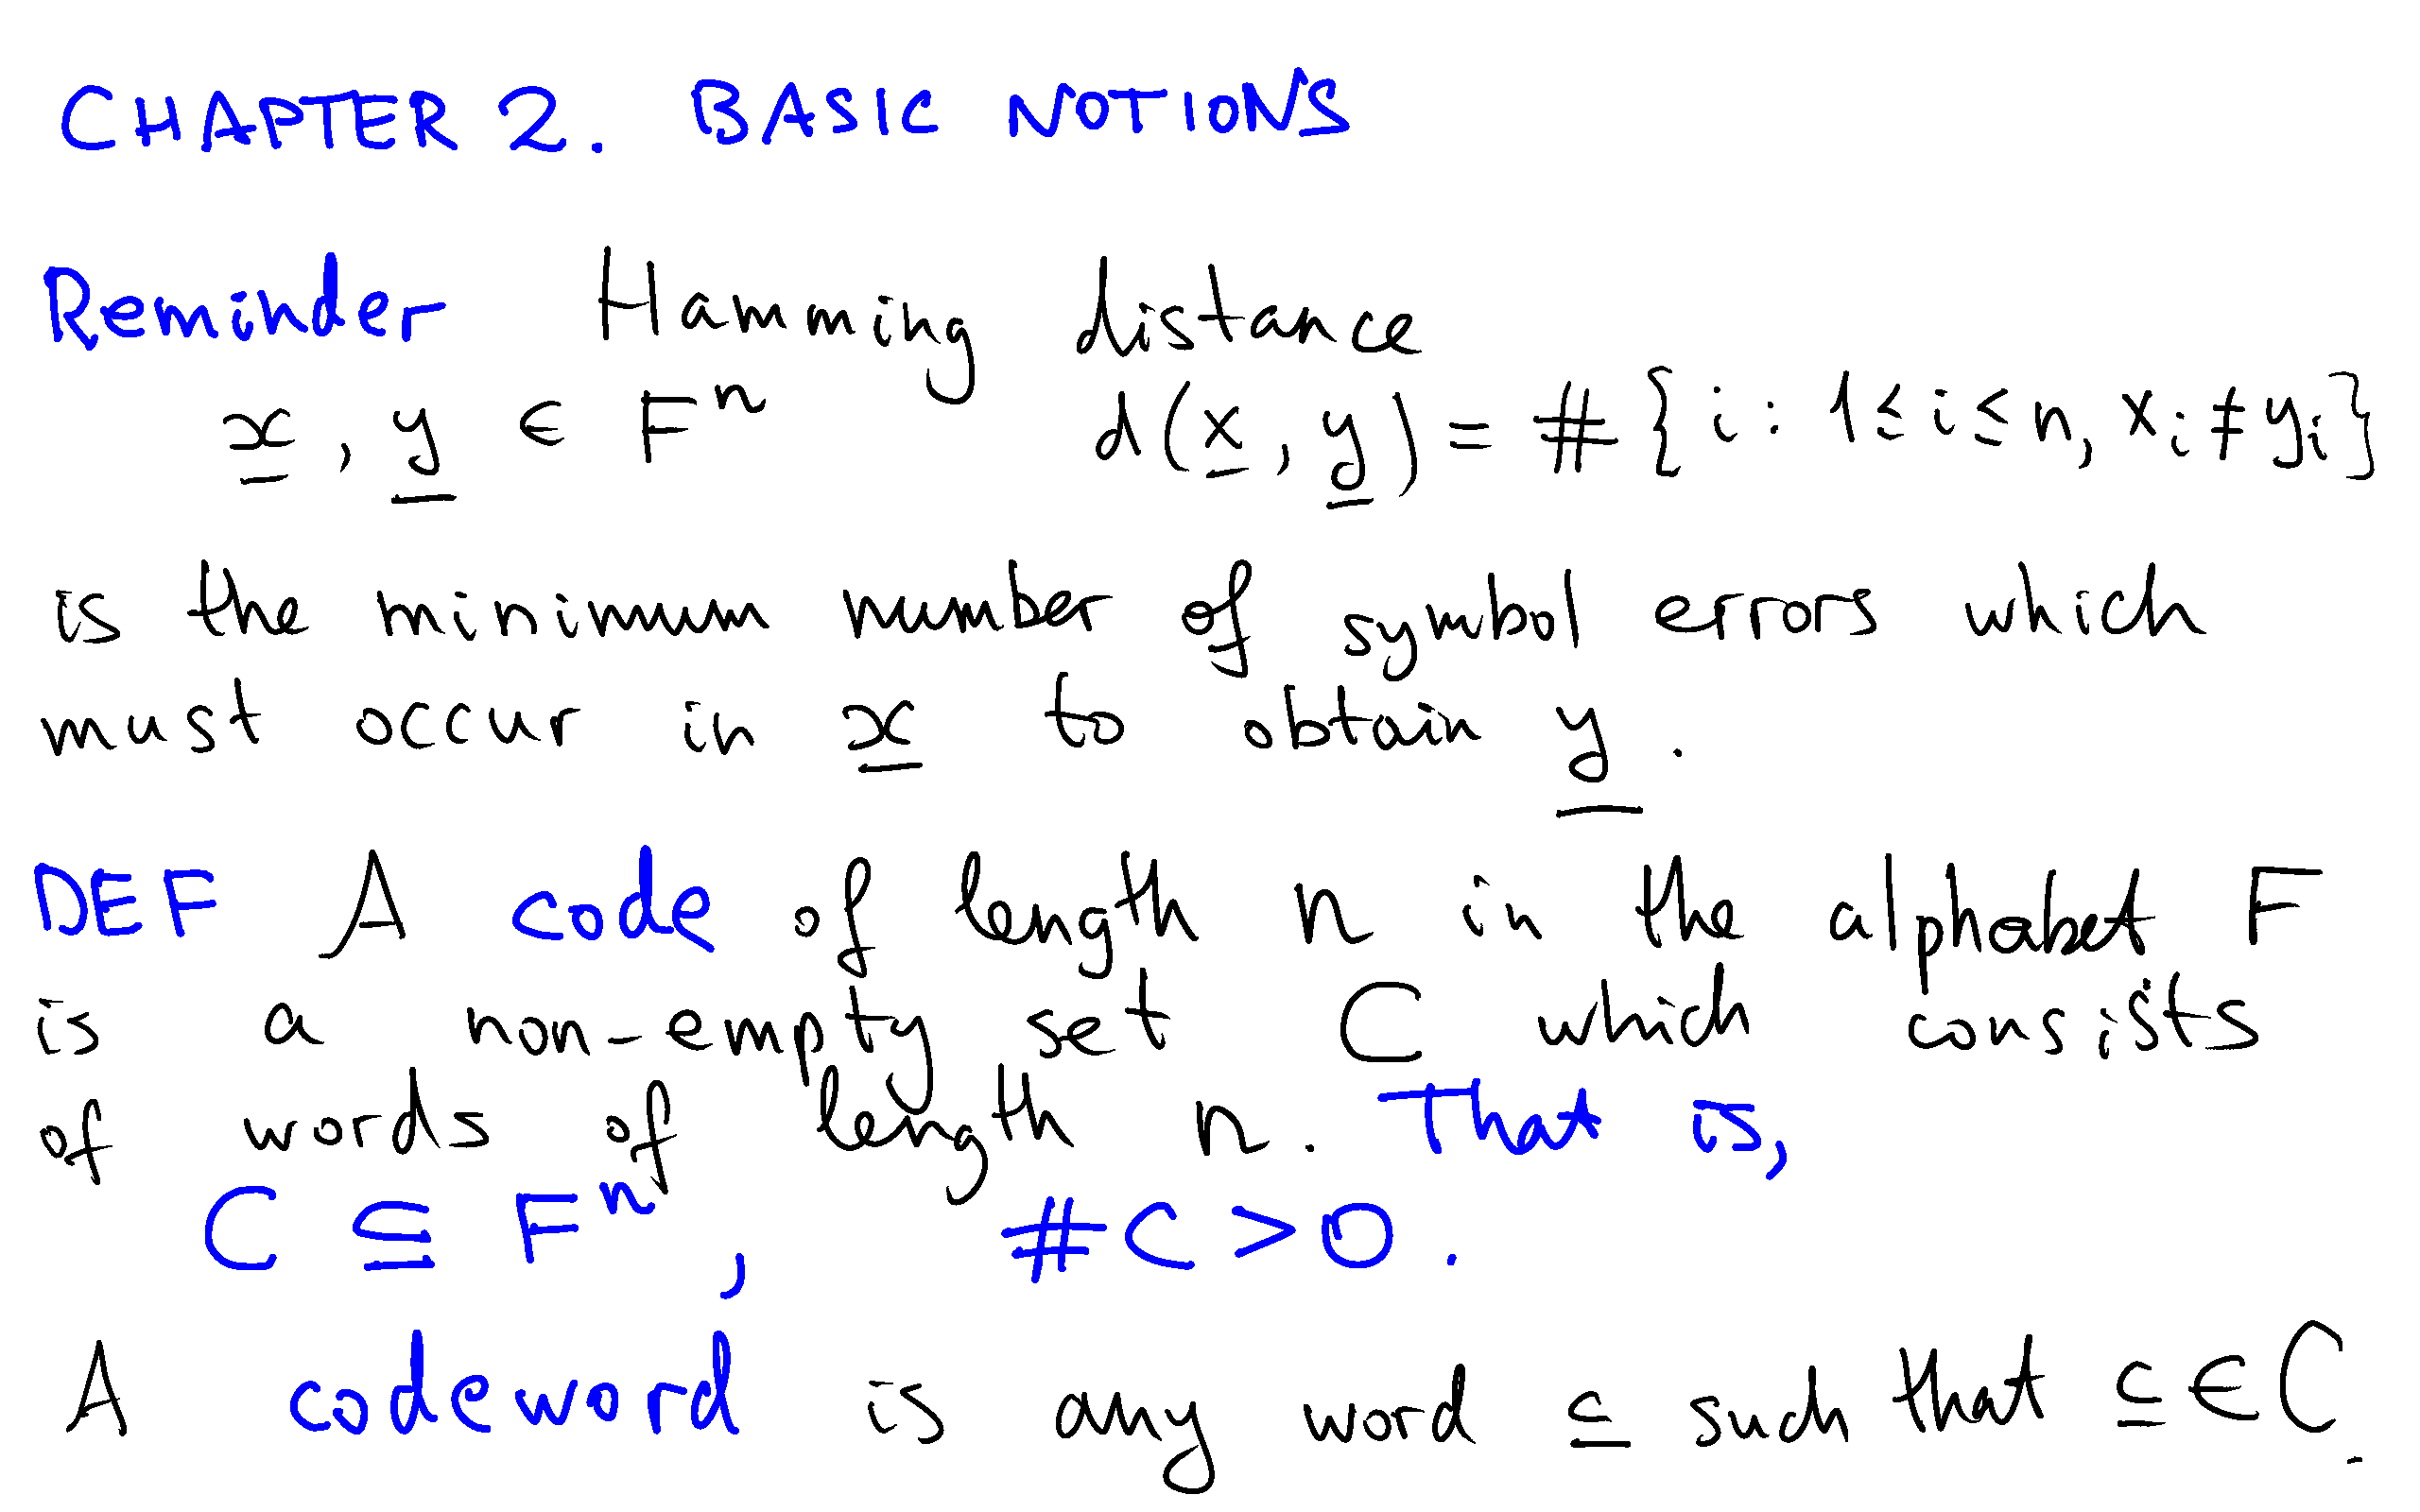 CHAPTER 2. BASIC NOTIONS
Reminder Hamming distance
x, y ∈ Fⁿ d(x, y) = # { i : 1≤i≤n, xᵢ≠yᵢ}
is the minimum number of symbol errors which
must occur in x to obtain y.
DEF A code of length n in the alphabet F
is a non-empty set C which consists
of words of length n. That is,
C ⊆ Fⁿ, #C>0.
A codeword is any word c such that c∈C.